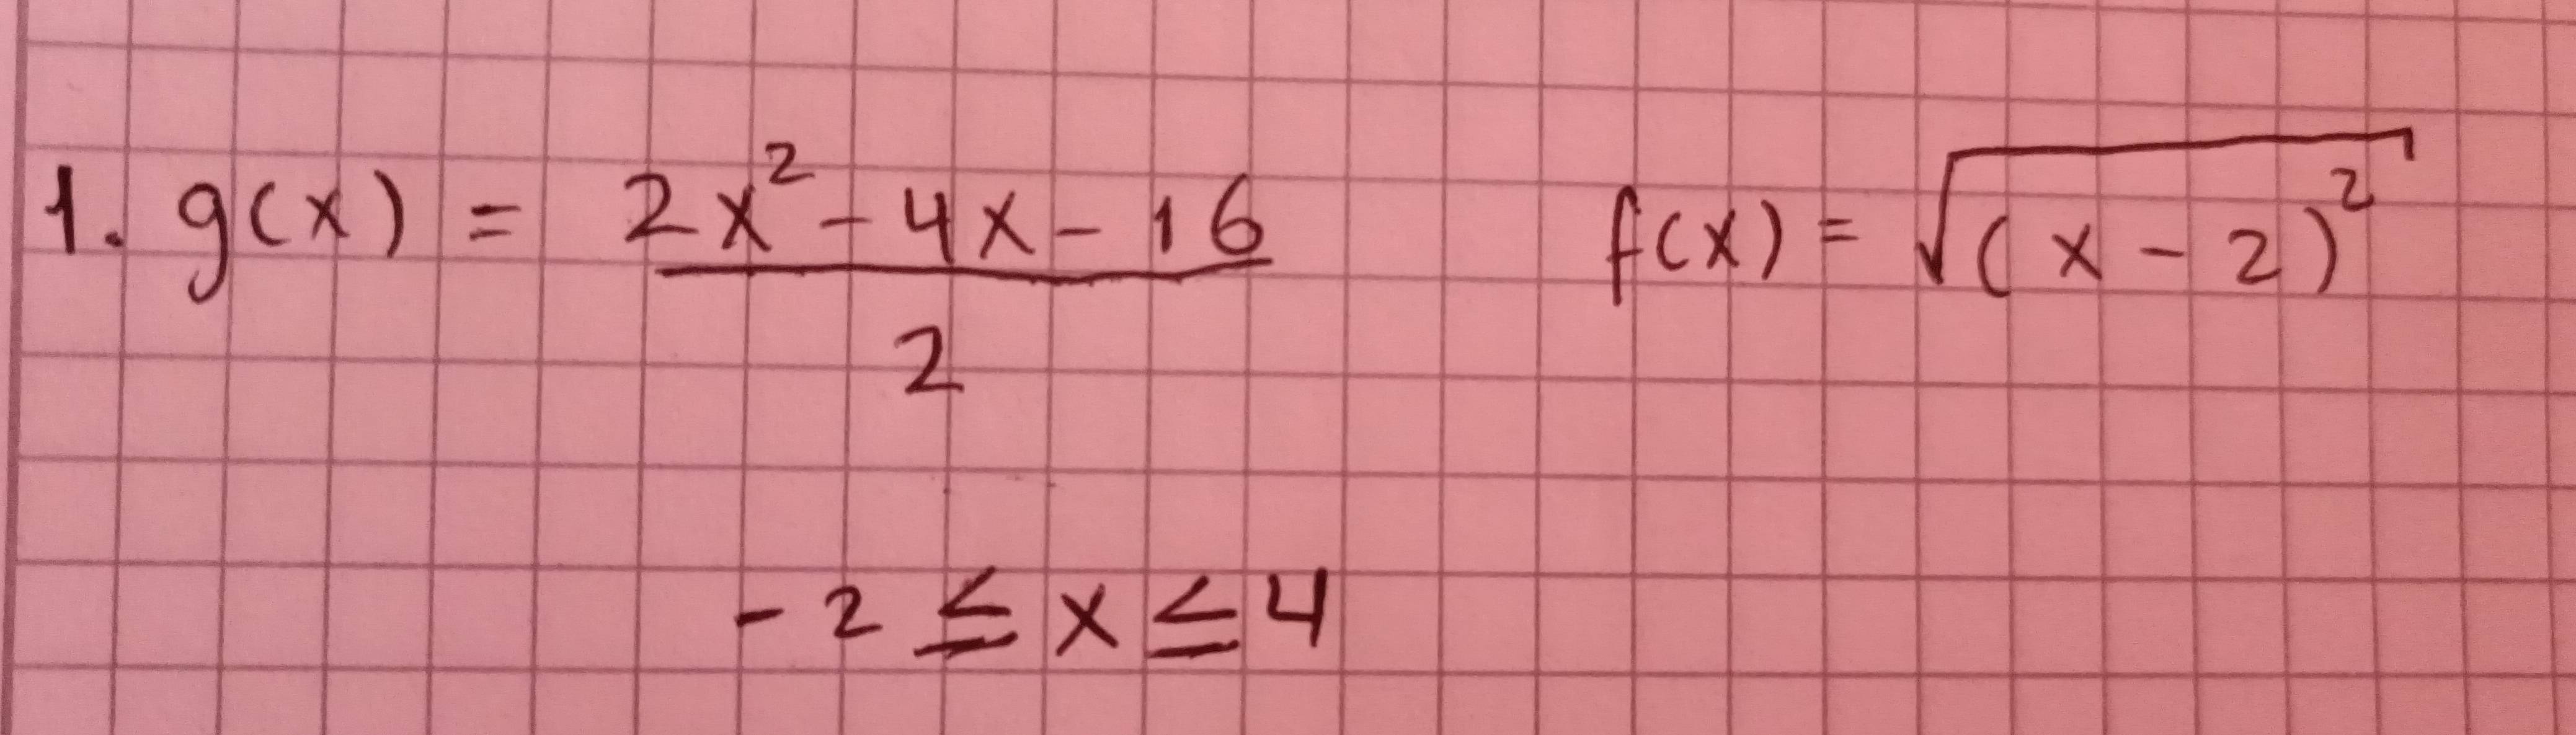 1. g(x) = (2x² - 4x - 16)/2 f(x) = √((x - 2)²)
-2 ≤ x ≤ 4